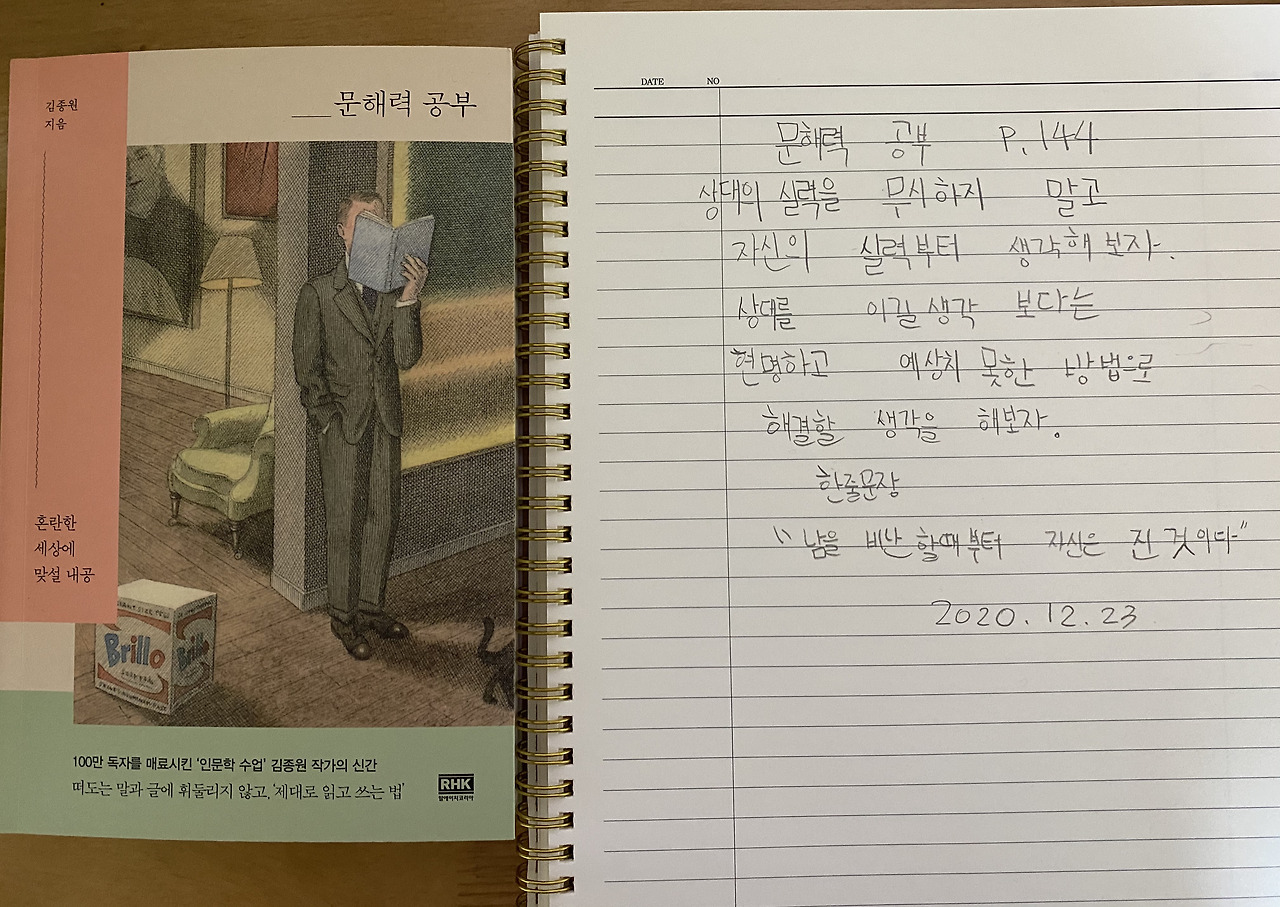 김종원
지음
문해력 공부
혼란한
세상에
맞설 내공
Brillo
Brillo
100만 독자를 매료시킨 '인문학 수업' 김종원 작가의 신간
떠도는 말과 글에 휘둘리지 않고, '제대로 읽고 쓰는 법'
RHK
알에이치코리아
DATE NO
문해력 공부 P.144
상대의 실력을 무시하지 말고
자신의 실력부터 생각해 보자.
상대를 이길 생각 보다는
현명하고 예상치 못한 방법으로
해결할 생각을 해보자.
한줄문장
"남을 비난 할때부터 자신은 진 것이다"
2020. 12. 23